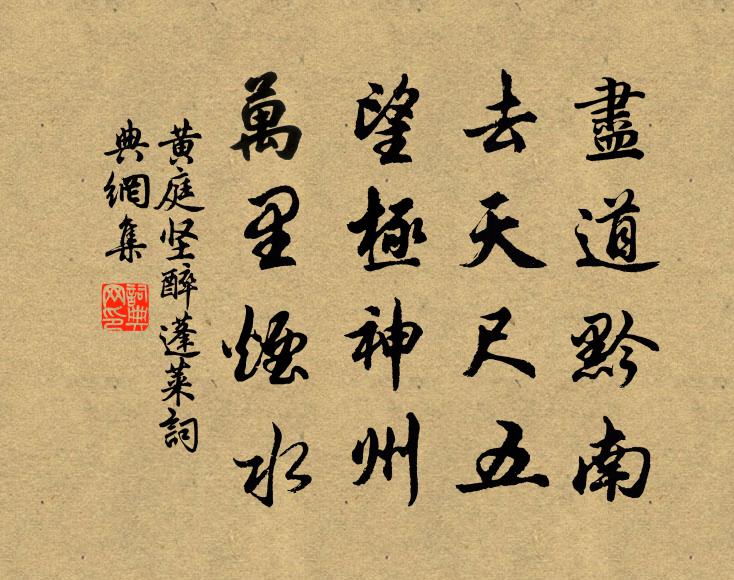 盡道黔南
去天尺五
望極神州
萬里煙水
黄庭坚醉蓬莱詞
典網集
詞典网印